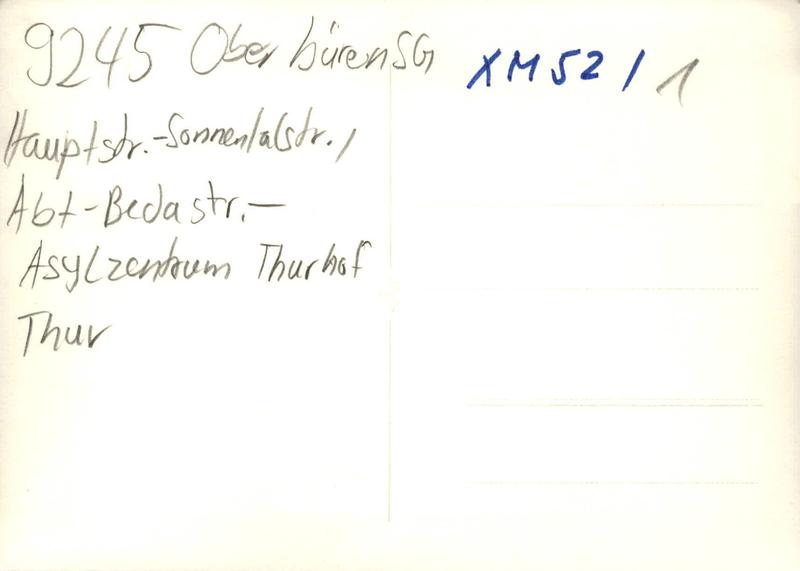 9245 Oberbüren SG
XM52/1
Hauptstr.-Sonnentalstr.,
Abt-Bedastr.-
Asylzentrum Thurhof
Thur